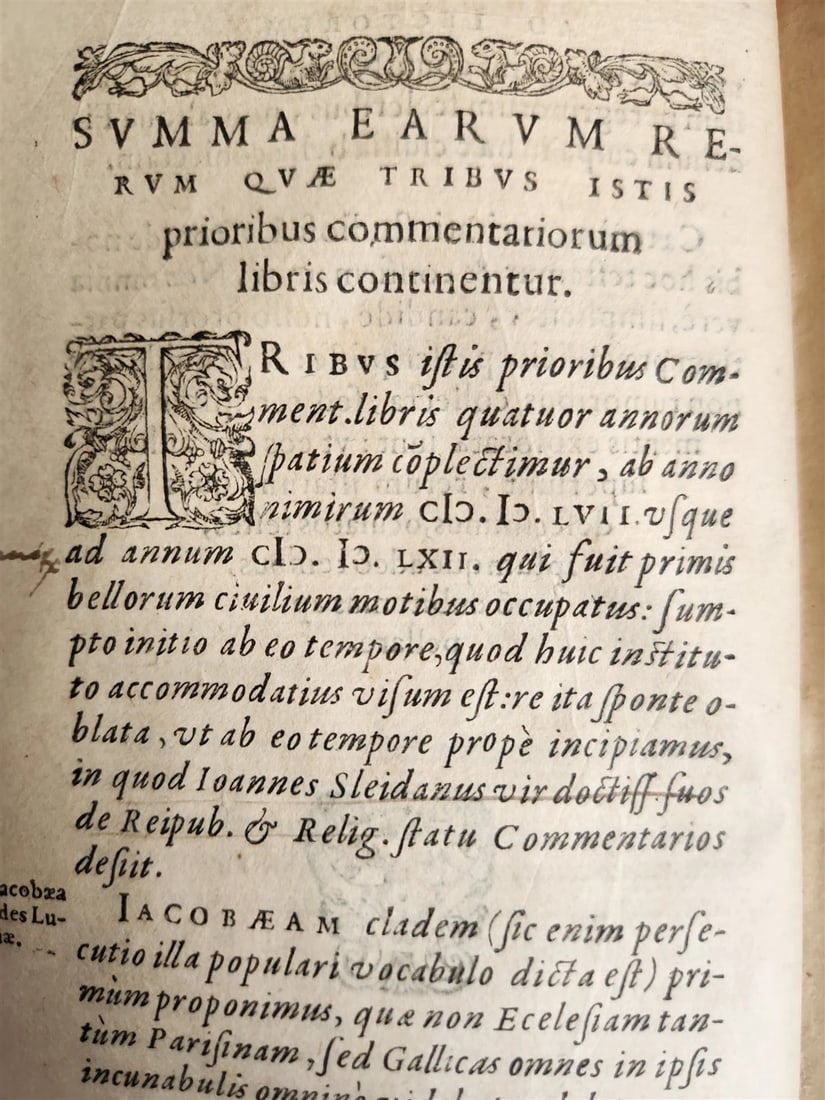 SVMMA EARVM RE-
RVM QVÆ TRIBVS ISTIS
prioribus commentariorum
libris continentur.
TRIBVS iſtis prioribus Com-
ment.libris quatuor annorum
ſpatium cōplectimur, ab anno
nimirum cIↄ. Iↄ. LVII. vſque
ad annum cIↄ. Iↄ. LXII. qui fuit primis
bellorum ciuilium motibus occupatus: ſum-
pto initio ab eo tempore, quod huic inſtitu-
to accommodatius viſum eſt: re ita ſponte o-
blata, vt ab eo tempore propè incipiamus,
in quod Ioannes Sleidanus vir doctiſſ. ſuos
de Reipub. & Relig. ſtatu Commentarios
deſiit.
acobæa
des Lu-
æ.
IACOBÆAM cladem (ſic enim perſe-
cutio illa populari vocabulo dicta eſt) pri-
mùm proponimus, quæ non Eceleſiam tan-
tùm Pariſinam, ſed Gallicas omnes in ipſis
incunabulis